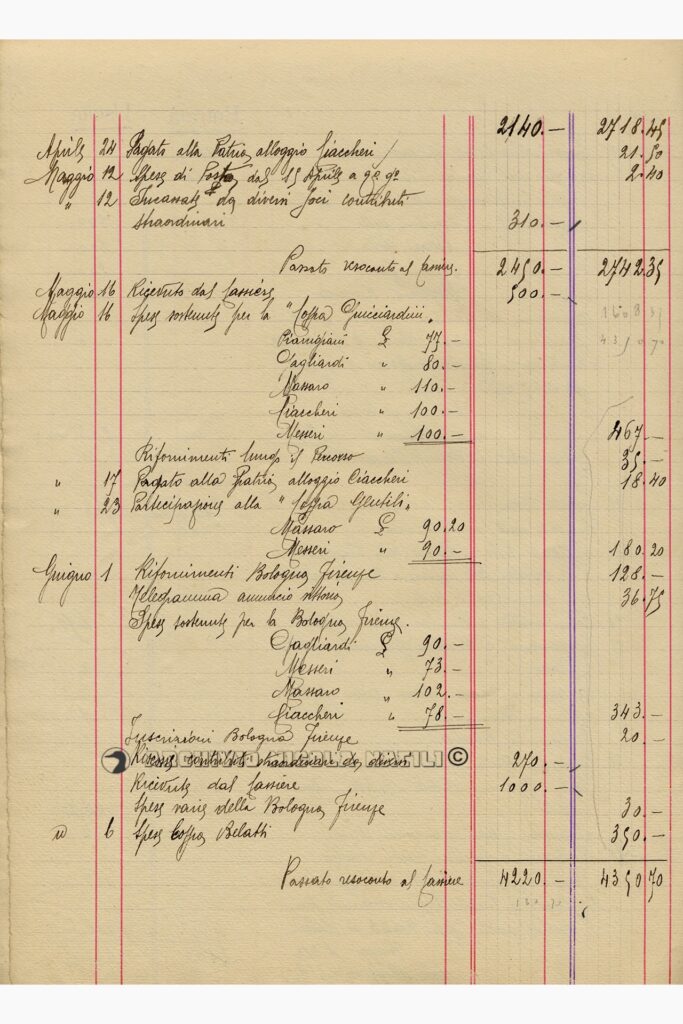 2140.— 2718.45
Aprile 24 Pagato alla Patria alloggio Ciaccheri 21.50
Maggio 12 Spese di Posta dal 15 Aprile a 2.40
" 12 Incassate da diversi Soci contributi
straordinari 310.—
Passato resoconto al Cassiere. 2450.— 2742.35
Maggio 16 Ricevuto dal Cassiere 500.—
Maggio 16 Spese sostenute per la "Coppa Guicciardini"
Pianigiani £ 77.—
Gagliardi " 80.—
Massaro " 110.—
Ciaccheri " 100.—
Messeri " 100.— 467.—
Rifornimenti lungo il Percorso 35.—
" 17 Pagato alla Patria alloggio Ciaccheri 18.40
" 23 Partecipazione alla "Coppa Gentili"
Massaro £ 90.20
Messeri " 90.— 180.20
Giugno 1 Rifornimenti Bologna Firenze 128.—
Telegramma annuncio vittoria 36.75
Spese sostenute per la Bologna Firenze.
Gagliardi £ 90.—
Messeri " 73.—
Massaro " 102.—
Ciaccheri " 78.— 343.—
Inscrizioni Bologna Firenze 20.—
contributi straordinari da diversi 270.—
ARCHIVIO NICOLA NATILI ©
Ricevute dal Cassiere 1000.—
Spese varie della Bologna Firenze 30.—
" 6 Spese Coppa Belatti 350.—
Passato resoconto al Cassiere 4220.— 4350.70